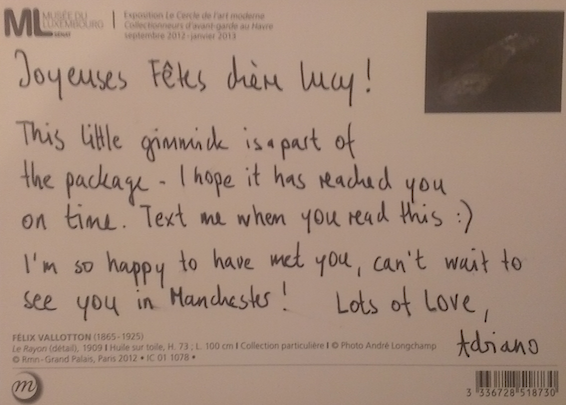 ML MUSÉE DU
LUXEMBOURG
SÉNAT
Exposition Le Cercle de l'art moderne
Collectionneurs d'avant-garde au Havre
septembre 2012 - janvier 2013
Joyeuses Fêtes chère Lucy!
This little gimmick is a part of
the package - I hope it has reached you
on time. Text me when you read this :)
I'm so happy to have met you, can't wait to
see you in Manchester! Lots of Love,
Adriano
FÉLIX VALLOTTON (1865-1925)
Le Rayon (détail), 1909 I Huile sur toile, H. 73 ; L. 100 cm I Collection particulière I © Photo André Longchamp
© Rmn-Grand Palais, Paris 2012 • IC 01 1078 •
m
3 336728 518730